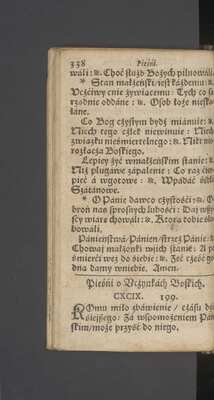 338 Pieśni.
wáli: Choć służb Bożych pilnowáli
* Stan máłżeński iest káżdemu:
Vczćiwy cnie żywiącemu: Tych co
rządnie oddáne: Osob łoże nieská
láne.
Co Bog cżystym bydź miánuie:
Niech tego cżłek niewinuie: Niech
zwiazku nieśmiertelnego: Nikt
rozłącża Boskiego.
Lepiey żyć wmáłżeńskim stanie:
Niż plugáwe zápalenie: Co raz
pieć á wgotowe: Wpádáć
Szátánowe.
* O Pánie dawco cżystośći:
broń nas sprosnych ludośći: Day
scy wiárę chowáli: Ktorą tobie
bowáli.
Pánieństwá/Pánien/strzeż Pánie:
Choway máłżonki wiich stanie: A
śmierći weź do siebie: Zeć cżeść
dná damy wniebie. Amen.
Pieśni o Vcżynkách Boskich.
CXCIX. 199.
KOmu miło zbáwienie / cżásu
śieyszego: Zá wspomożeniem Pań
skim/może przyść do niego.